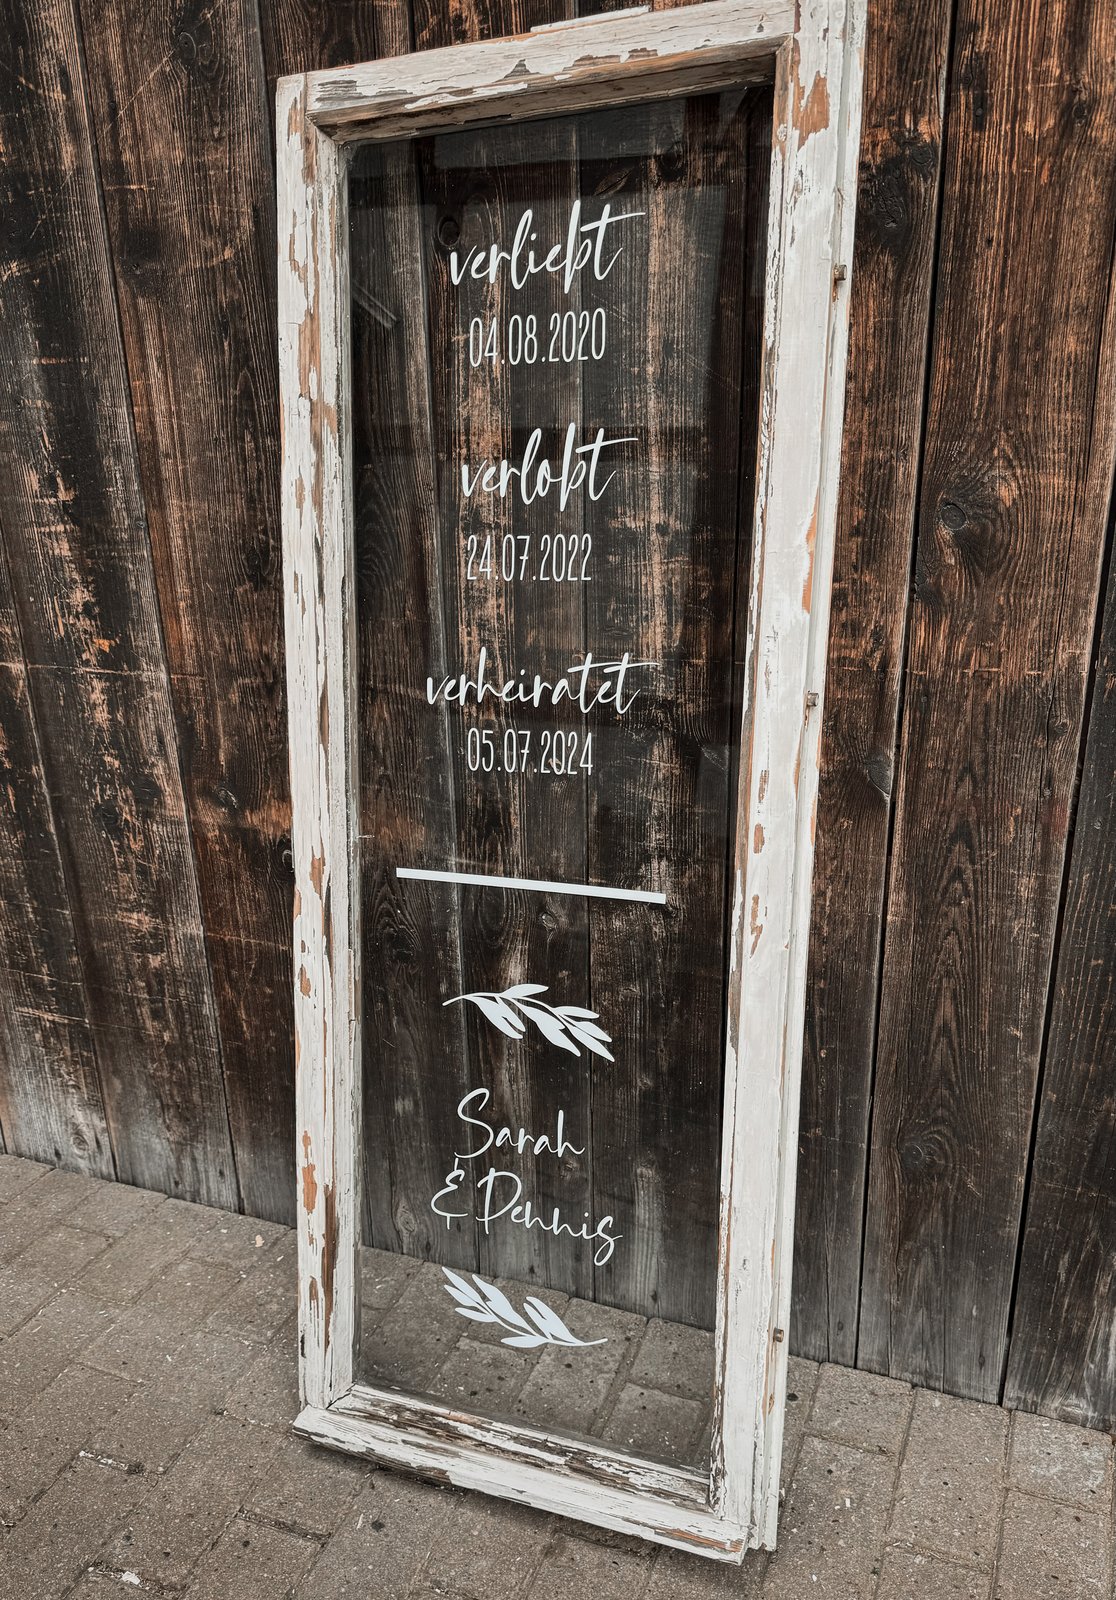 verliebt
04.08.2020
verlobt
24.07.2022
verheiratet
05.07.2024
Sarah
& Dennis